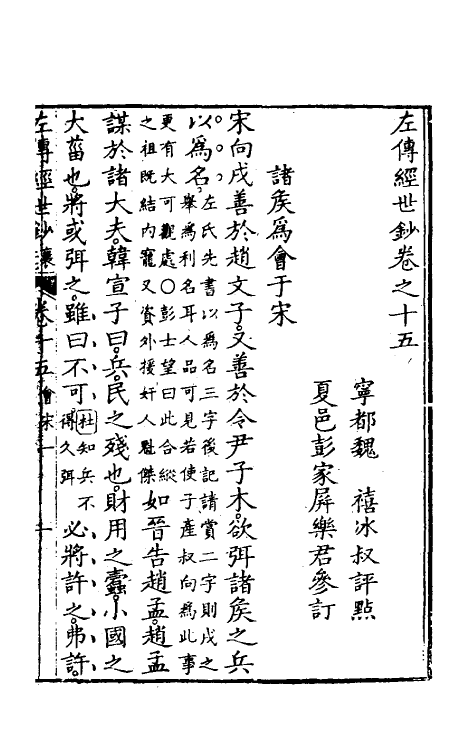 左傳經世鈔卷之十五
寧都魏　禧冰叔評點
夏邑彭家屏樂君參訂
諸矦為會于宋
宋向戌善於趙文子又善於令尹子木欲弭諸矦之兵
以為名左氏先書以為名三字後記請賞二字則戌之
舉為利名耳人品可見若使子產叔向為此事
更有大可觀處○彭士望曰此合縱
之祖既結內寵又資外援奸人魁傑如晉告趙孟趙孟
謀於諸大夫韓宣子曰兵民之殘也財用之蠹小國之
大菑也將或弭之雖曰不可杜知兵不
得久弭必將許之弗許
左傳經世鈔
卷十五會宋
一